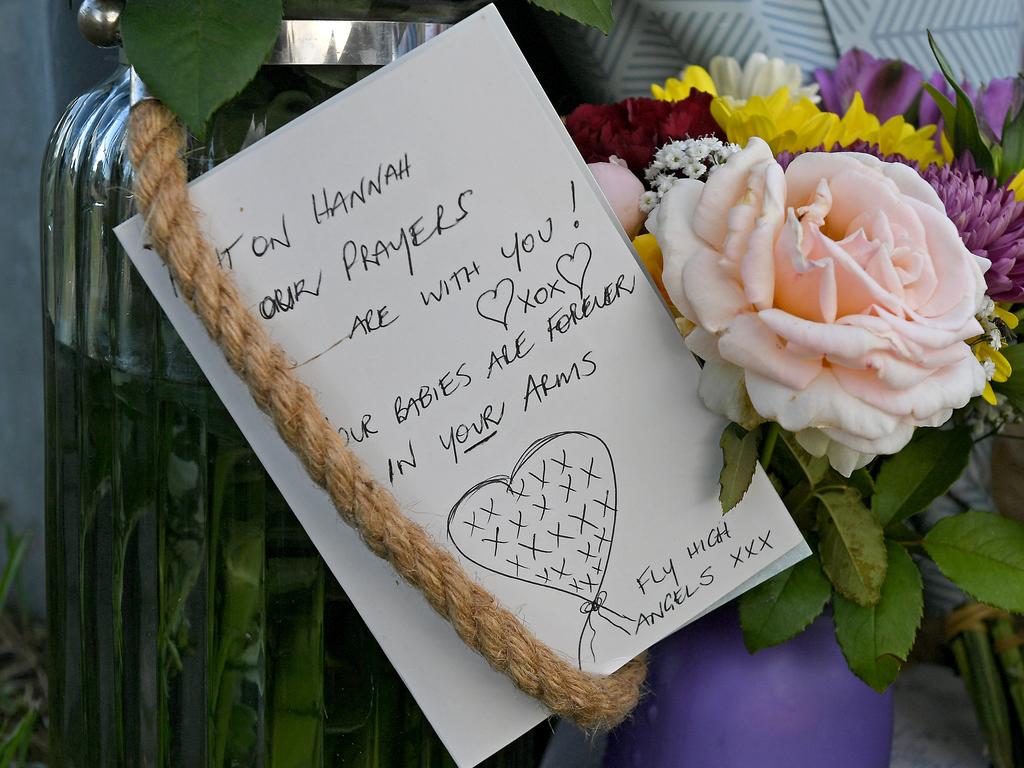 ON HANNAH
OUR PRAYERS
ARE WITH YOU!
XOX
OUR BABIES ARE FOREVER
IN YOUR ARMS
X X X X X X X X X X X X X X X X X X X X X
FLY HIGH
ANGELS XXX